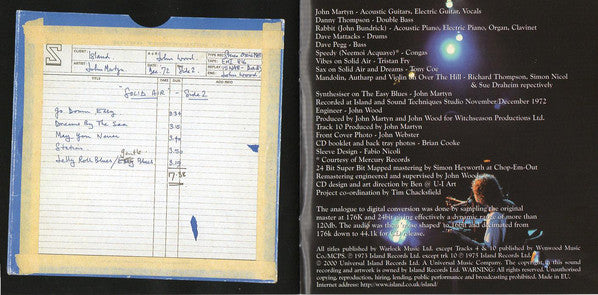 CLIENT Island
John Wood.
ARTIST John Martyn
DATE Dec 72
Side 2.
John Wood
TITLE
DUR
"SOLID AIR" - Side 2
Go Down Easy
Dreams By The Sea
May You Never
Station
Gentle
Jelly Roll Blues / Easy Blues
17.38
John Martyn - Acoustic Guitars, Electric Guitar, Vocals
Danny Thompson - Double Bass
Rabbit (John Bundrick) - Acoustic Piano, Electric Piano, Organ, Clavinet
Dave Mattacks - Drums
Dave Pegg - Bass
Speedy (Neemoi Acquaye)* - Congas
Vibes on Solid Air - Tristan Fry
Sax on Solid Air and Dreams - Tony Coe
Mandolin, Autharp and Violin on Over The Hill - Richard Thompson, Simon Nicol
& Sue Draheim repectively
Synthesiser on The Easy Blues - John Martyn
Recorded at Island and Sound Techniques Studio November/December 1972
Engineer - John Wood
Produced by John Martyn and John Wood for Witchseason Productions Ltd.
Track 10 Produced by John Martyn
Front Cover Photo - John Webster
CD booklet and back tray photos - Brian Cooke
Sleeve Design - Fabio Nicoli
* Courtesy of Mercury Records
24 Bit Super Bit Mapped mastering by Simon Heyworth at Chop-Em-Out
Remastering engineered and supervised by John Wood
CD design and art direction by Ben @ U-I Art
Project co-ordination by Tim Chacksfield
The analogue to digital conversion was done by sampling the original
master at 176K and 24bit giving effectively a dynamic range of more than
120db. The audio was then noise shaped to 16bit and decimated from
176k down to 44.1k for CD release.
All titles published by Warlock Music Ltd. except Tracks 4 & 10 published by Wenwood Music
Co./MCPS. ℗ 1973 Island Records Ltd. except trk 10 ℗ 1975 Island Records Ltd.
© 2000 Universal Island Records Ltd. A Universal Music Company. The copyright in this sound
recording and artwork is owned by Island Records Ltd. WARNING: All rights reserved. Unauthorised
copying, reproduction, hiring, lending, public performance and broadcasting prohibited. Made in EU.
Internet address: http://www.island.co.uk/island/